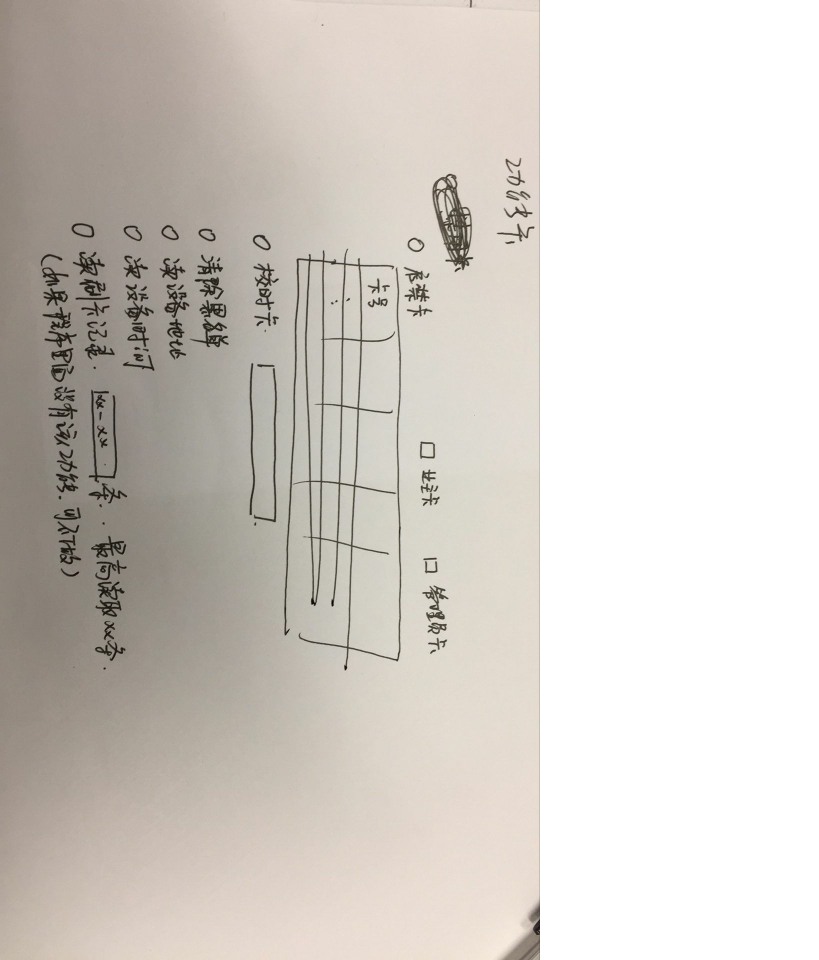 功能卡
○ 废禁卡 □ 业主卡 □ 管理员卡
卡号
○ 校时卡
○ 清除黑名单
○ 读设备地址
○ 读设备时间
○ 读刷卡记录. xx-xx 条. 最高读取xx条.
(如果程序里面没有该功能. 可不做)